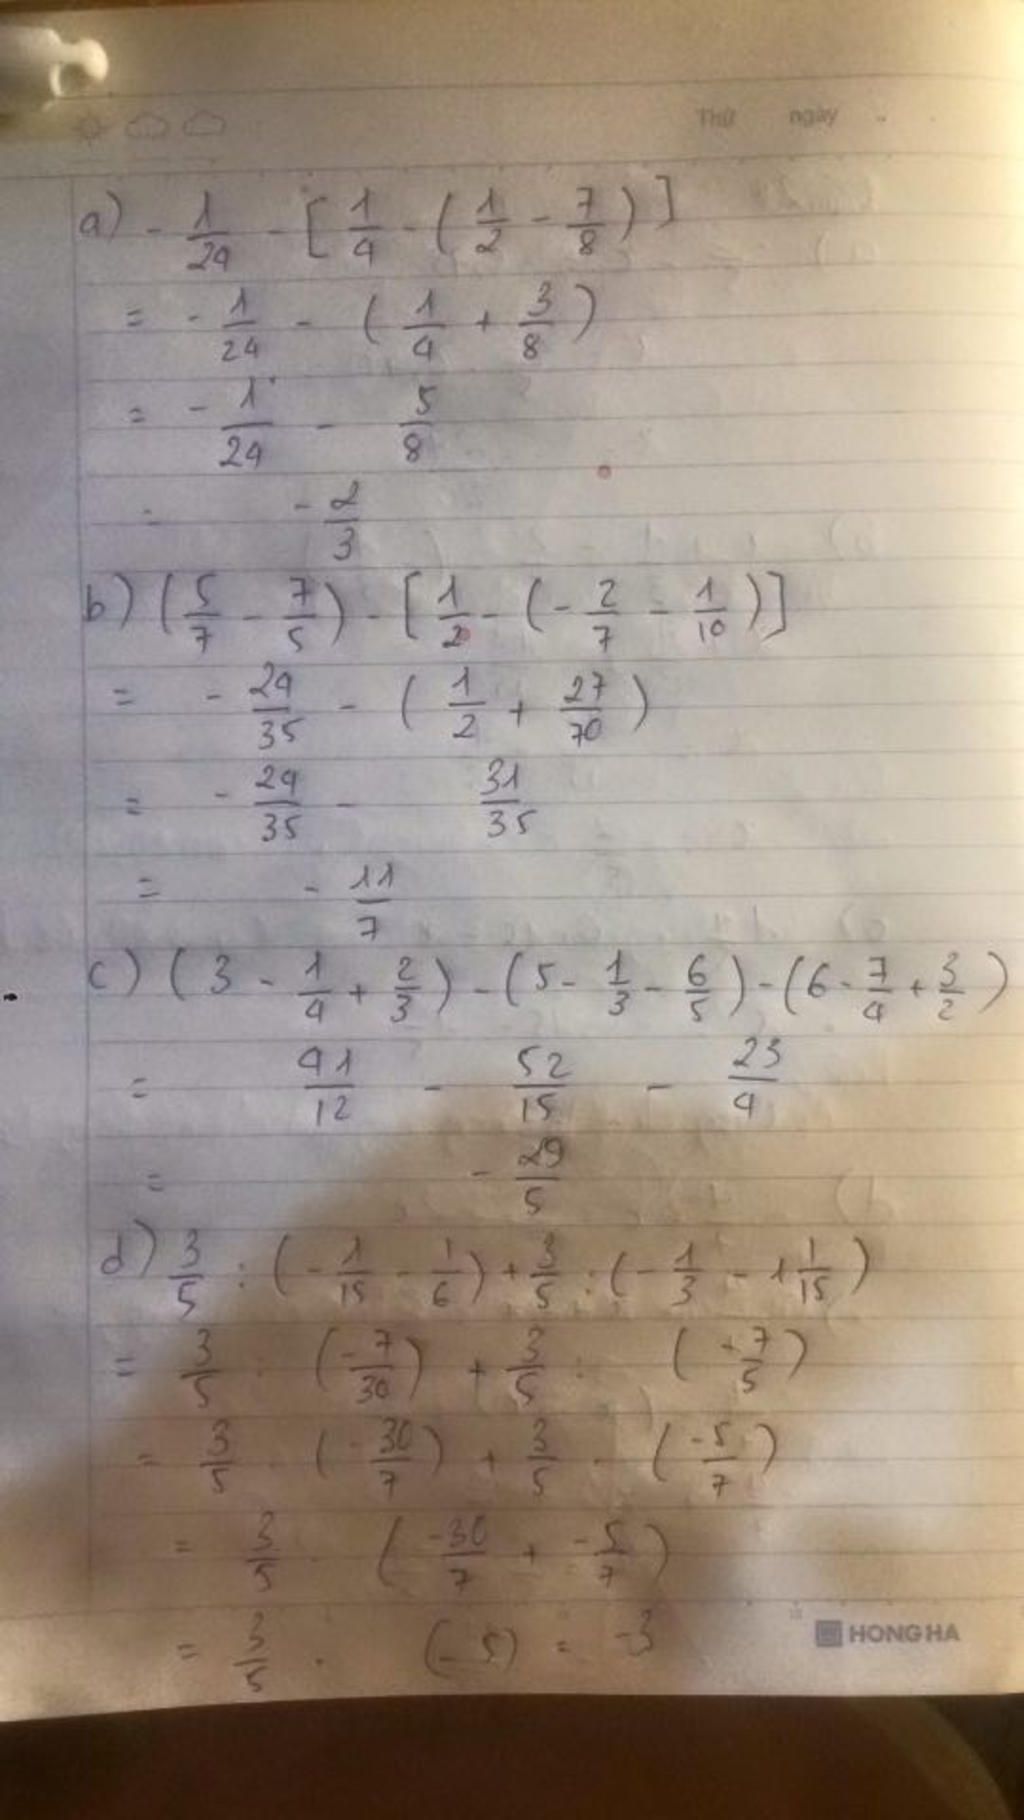 Thứ ngày
a) - 1/24 - [1/4 - (1/2 - 7/8)]
= - 1/24 - (1/4 + 3/8)
= - 1/24 - 5/8
= - 2/3
b) (5/7 - 7/5) - [1/2 - (- 2/7 - 1/10)]
= - 24/35 - (1/2 + 27/70)
= - 24/35 - 31/35
= - 11/7
c) (3 - 1/4 + 2/3) - (5 - 1/3 - 6/5) - (6 - 7/4 + 3/2)
= 41/12 - 52/15 - 23/4
= - 29/5
d) 3/5 : (- 1/15 - 1/6) + 3/5 : (- 1/3 - 1 1/15)
= 3/5 : (-7/30) + 3/5 : (-7/5)
= 3/5 . (- 30/7) + 3/5 . (-5/7)
= 3/5 . (-30/7 + -5/7)
= 3/5 . (-5) = -3
HONG HA